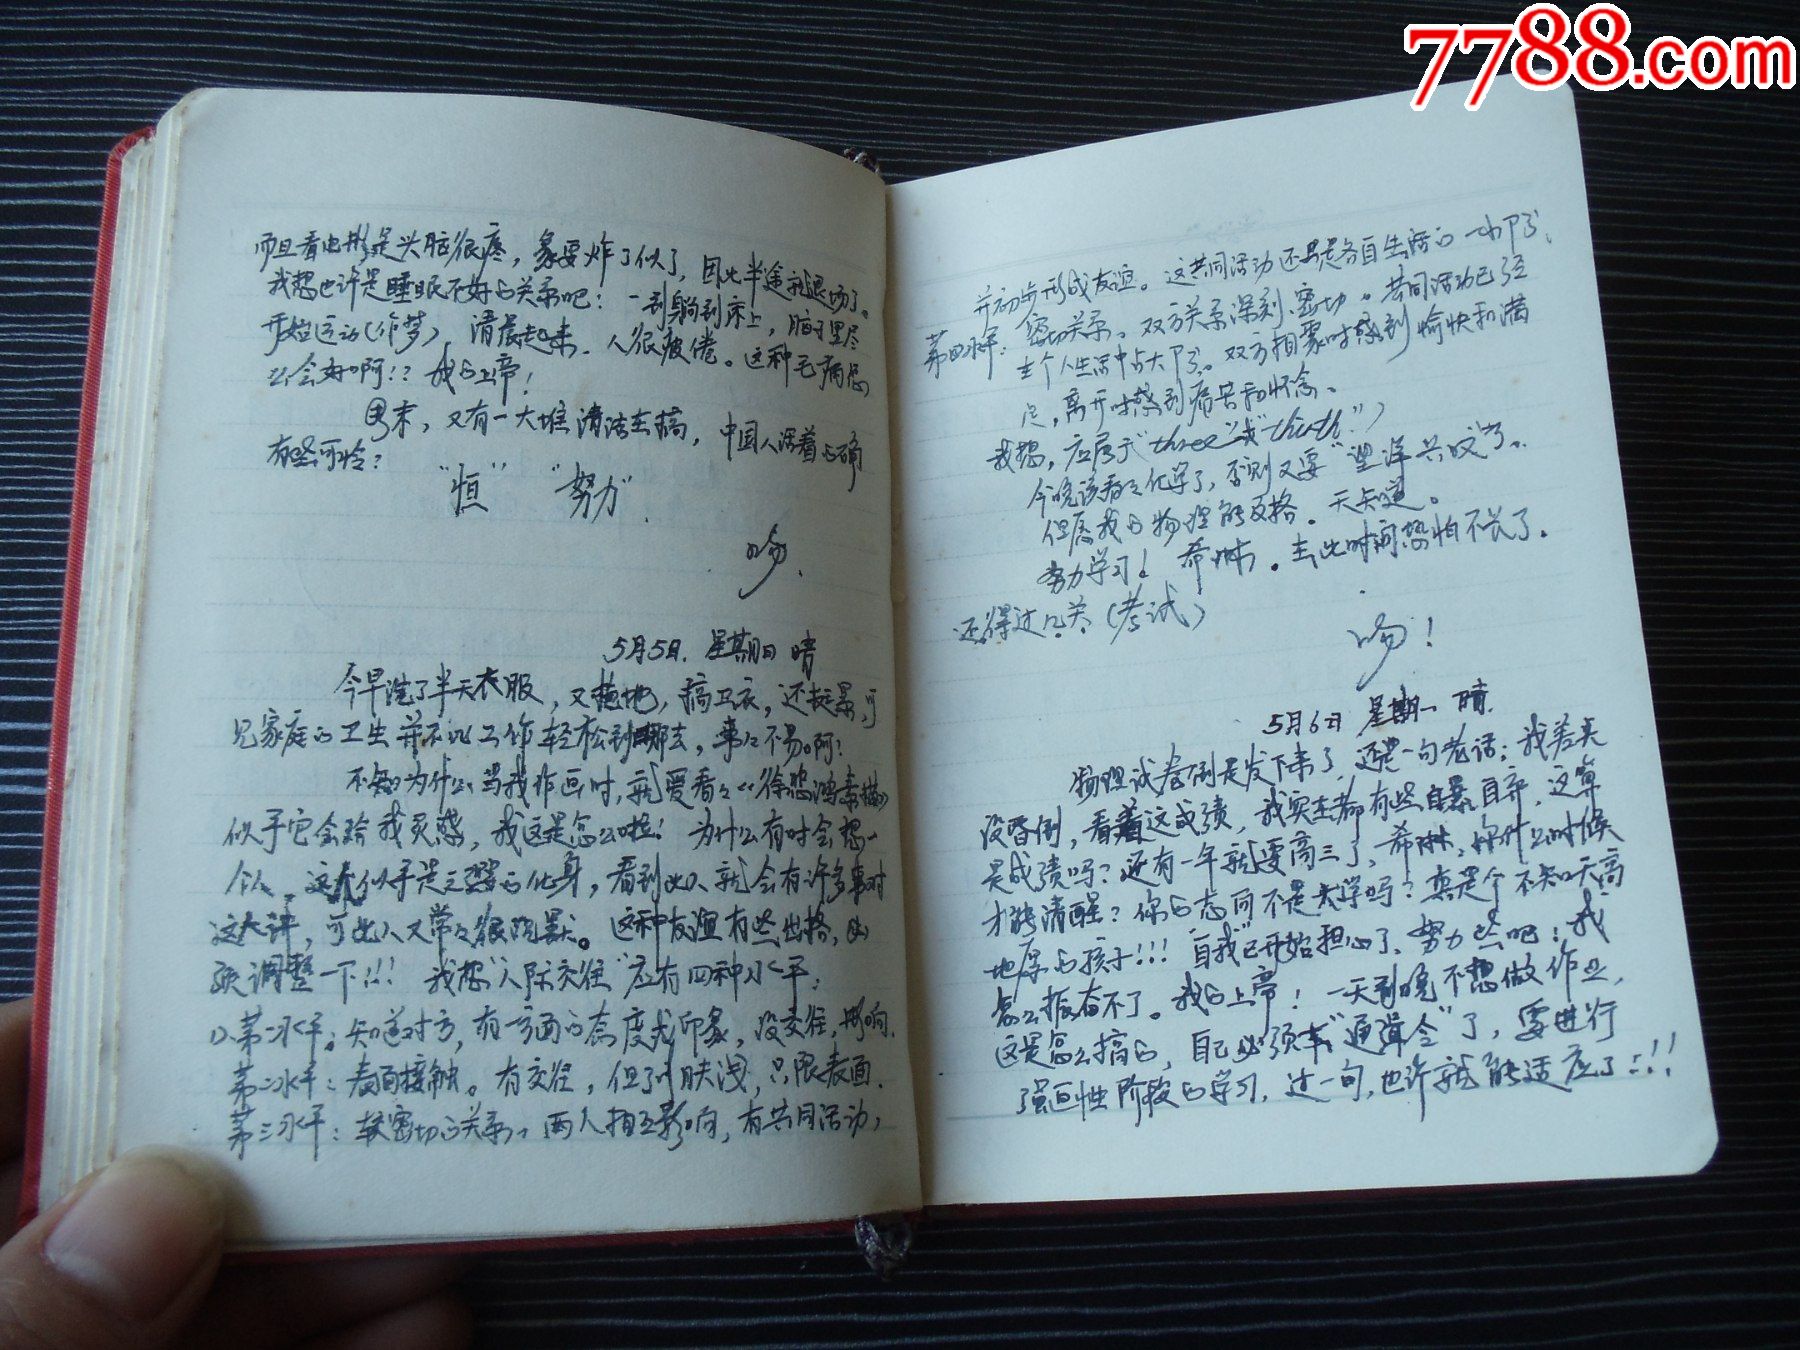 7788.com
而且看电影是头脑很疼，象要炸了似了，因此半途就退场了。
我想也许是睡眠不好的关系吧：一到躺到床上，脑子里尽
开始运动（作梦），清晨起来，人很疲倦。这种毛病怎
么会好啊！？我的上帝！
周末，又有一大堆清洁去搞，中国人活着的确
有些可怜？
“恒”“努力”
吻.
5月5日. 星期日 晴
今早洗了半天衣服，又拖地，搞卫衣，还挺累，可
见家庭的卫生并不比工作轻松到哪去，事々不易啊？
不知为什么当我作画时，就爱看々《徐悲鸿素描》
似乎它会给我灵感，我这是怎么啦！为什么有时会想一
个人，这人似乎是的化身，看到此人就会有许多事对
这人讲，可此人又常々很。这种友谊有些出格，
调整一下！！！我想“人际交往”应有四种水平：
1）.第一水平：知道对方，有方面的态度或印象，没交往，影响.
第二水平：表面接触。有交往，但肤浅，只限表面.
第三水平：较密切的关系，两人相互影响，有共同活动，
并初步形成友谊。这共同活动还只是各自生活的一小部分，
第四水平：密切关系。双方关系深刻、密切。共同活动已经
在个人生活中占大部分。双方相聚时感到愉快和满
足，离开时感到痛苦和怀念。
我想，应属于“three”或“
今晚该看々化学了，否则又要“望洋兴叹”了。
但愿我的物理能及格。天知道。
努力学习！希琳。在此时间恐怕不长了.
还得过几关（考试）
吻！
5月6日 星期一 晴.
物理试卷倒是发下来了，还是一句老话：我差点
没昏倒，看着这成绩，我实在都有些自暴自弃，这算
是成绩吗？还有一年就要高三了，希琳，你什么时候
才能清醒？你的志向不是大学吗？真是个不知天高
地厚的孩子！！！“自我”已开始担心了，努力些吧！我
怎么振奋不了。我的上帝！一天到晚不想做作业，
这是怎么搞的，自己必须下“通缉令”了，要进行
强迫性阶段的学习，过一旬，也许就能适应了！！！